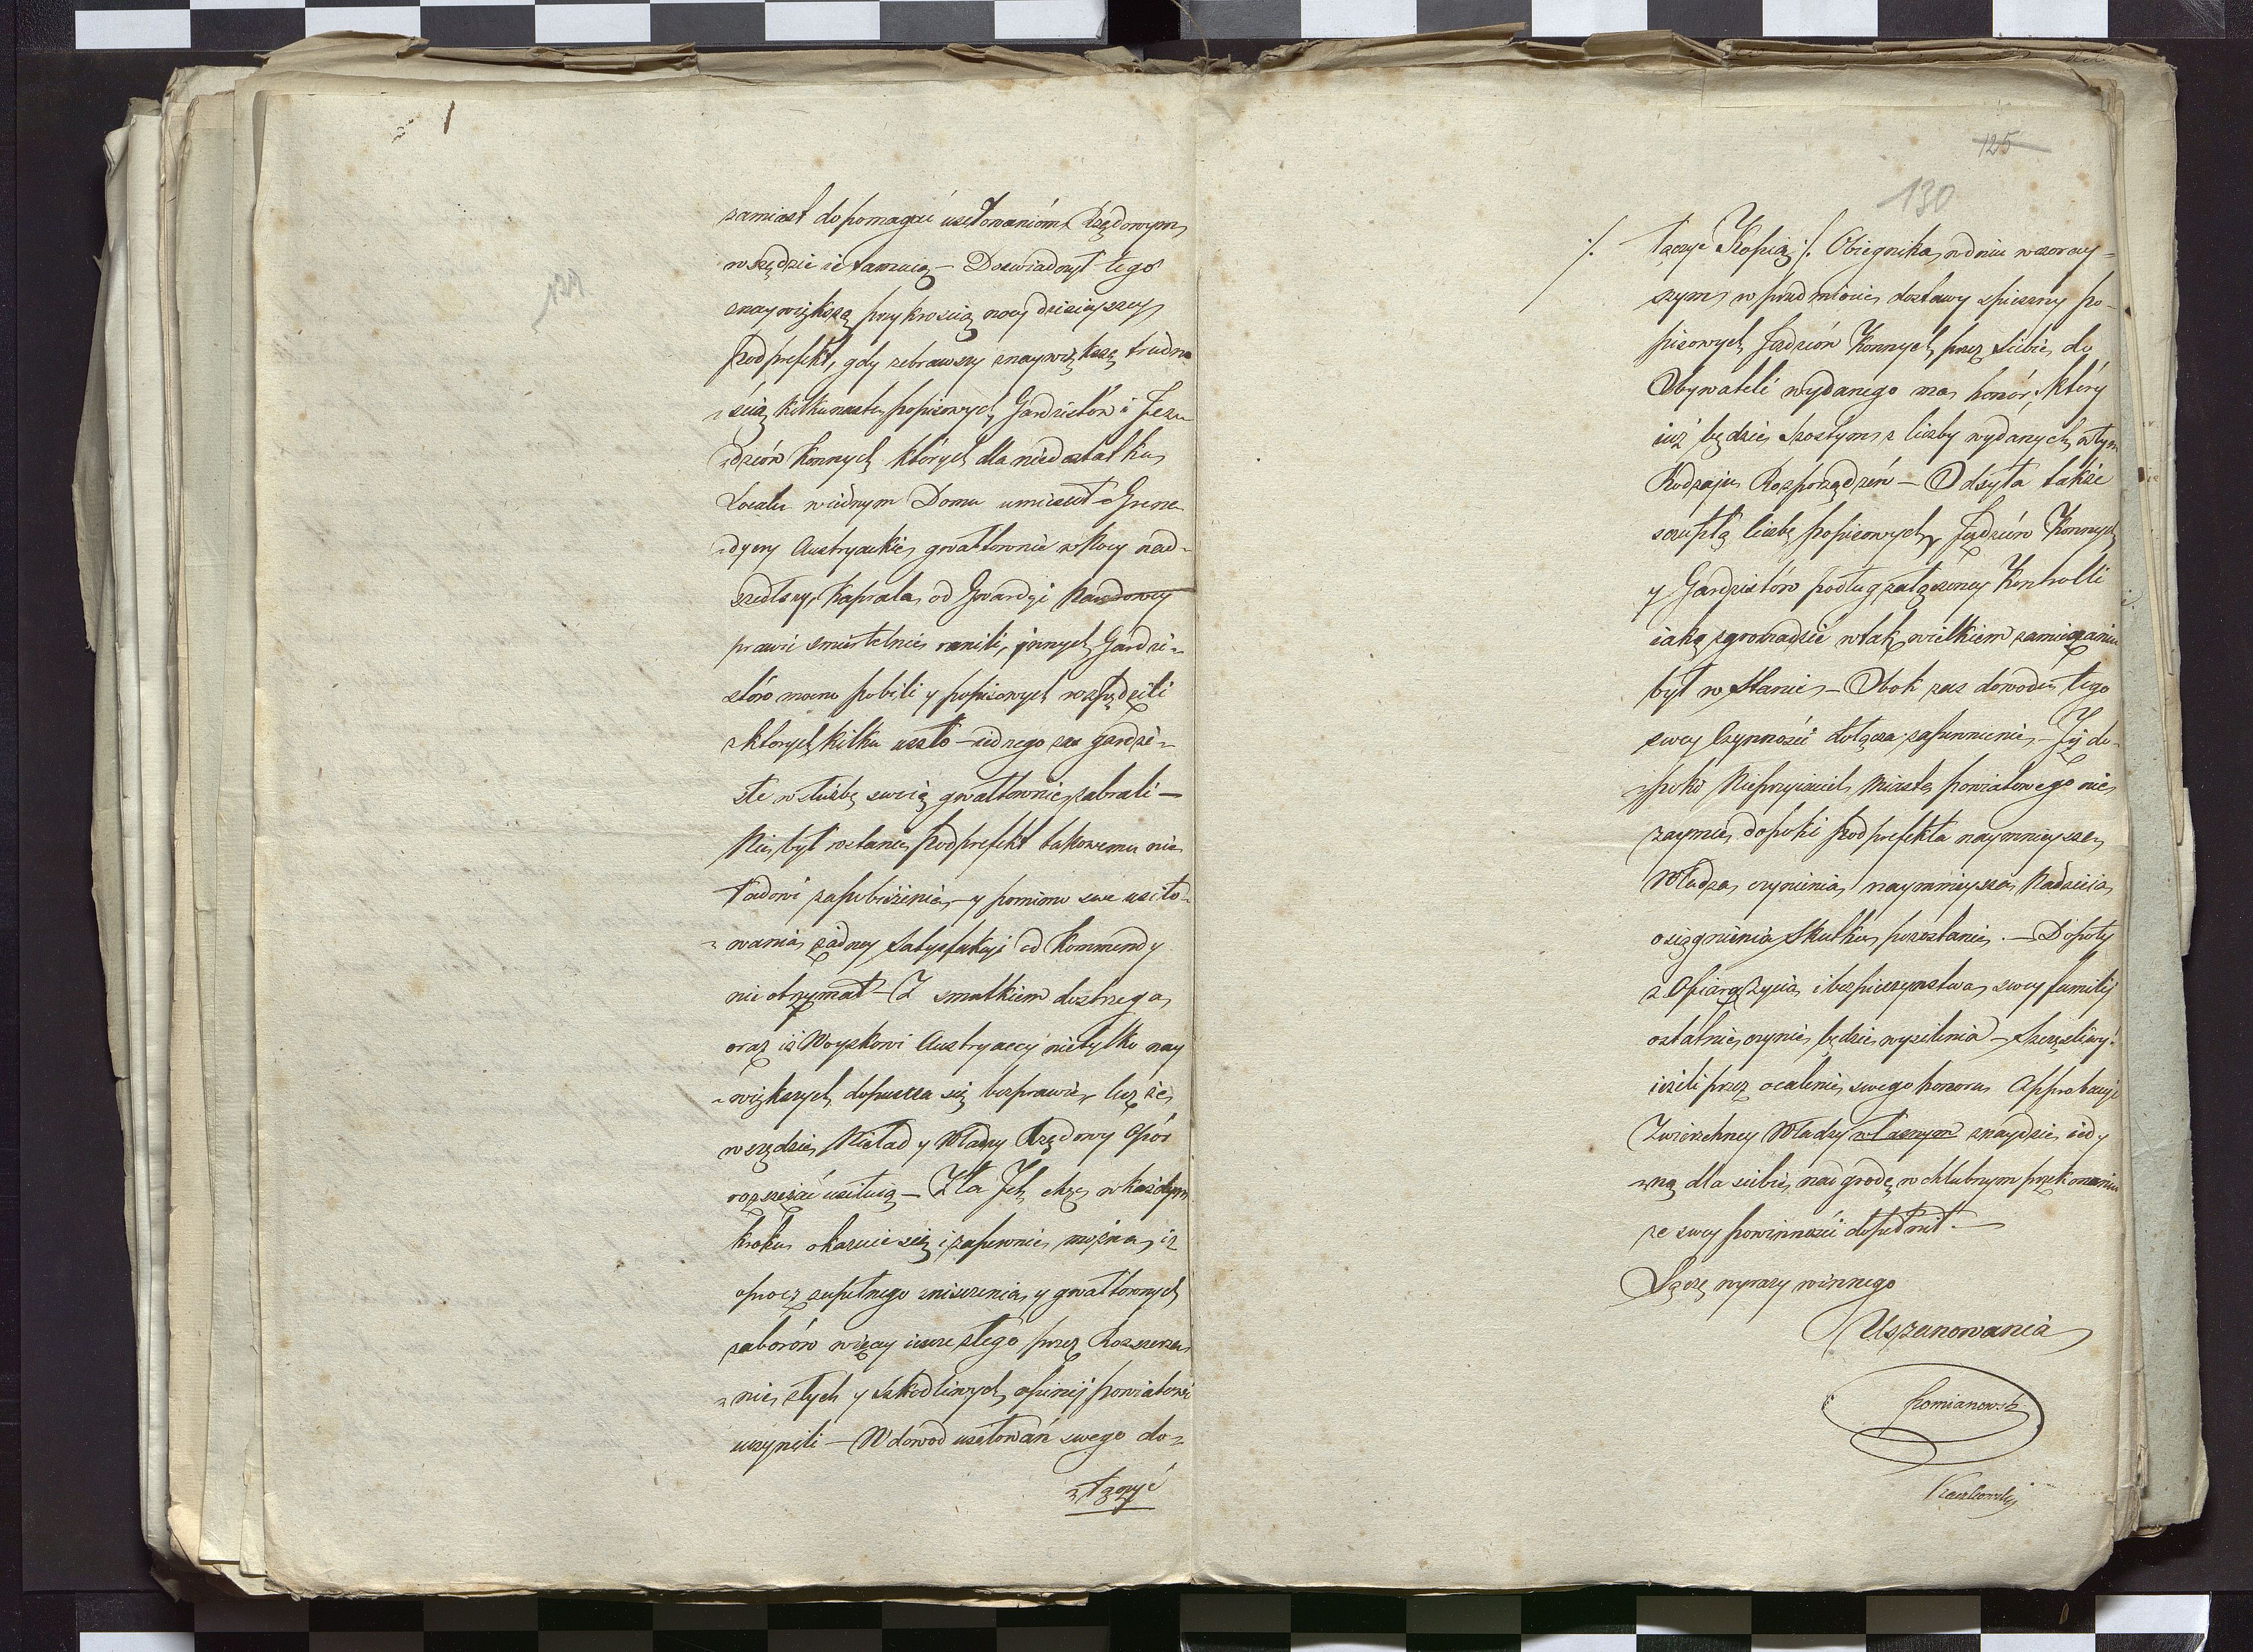 zamiast dopomagać usiłowaniom Rządowym
wszędzie ie tamuią — Doswiadczył tego
z naywiększą przykrością nocy dzisieyszey
Podprefekt, gdy zebrawszy z naywiększą trudno
-ścią kilkunastu popisowych, Gardzistów i Jezn-
-dzców konnych których dla niedostatku
Localu w iednym Domu umieścił — Grena
-dyery Austryackie gwałtownie w Nocy nad-
szedłszy, kaprala od Gwardyi Narodowey
prawie smiertelnie ranili, innych Gardzi-
stów mocno pobili y popisowych rozpędzili
z ktorych kilku uszło — iednego zas gardzi-
stę w służbę swoią gwałtownie zabrali —
Nie był w stanie Podprefekt takowemu nie
ładowi zapobieżenia, — y pomimo swe usiło-
-wania żadney Satysfakcyi od Kommendy
nie otrzymał — Z smutkiem dostrzega
oraz iż Woyskowi Austryaccy nietylko nay
-większych dopuszcza się bezprawiów, lecz że
wszędzie Nieład y Władzy Rządowey Opór
rozszerzać usiłuią — Zła Jch chęć w każdym
kroku okazuie się i zapewnie można, iż
oprocz zupełnego zniszczenia y gwałtownych
zaborów więcy ieszcze złego przez Rozszerze
-nie złych y szkodliwych opinij powiatowi
uczynili — W dowod usiłowań swego do-
-łączyć
129.
125
130
./. łączyć Kopią ./. Obiegnika, w dniu wczoray-
szym w przedmiocie dostawy spieszney po-
pisowych Jezdzców Konnych przez siebie do
Obywateli wydanego ma honór, który
iuż będzie szostym z liczby wydanych w tym
Rodzaju Rozporządzeń — Odsyła także
szczupłą liczbę popisowych, Jezdzców Konnych
y Gardzistów podług załączoney Kontrolli
iaką zgromadzić w tak wielkiem zamięszaniu
był w Stanie — Obok zas dowodu tego
swey Czynności dołącza zapewnienie, Jż do-
-poki Nieprzyiaciel Miasta powiatowego nie
zaymie, dopoki Podprefekta naymnieysza
Władza czynienia, naymnieysza Nadzieia
osiągnienia Skutku pozostanie. — Dopoty
z Ofiarą życia i bezpieczeństwa swey familij
ostatnie czynić będzie wysilenia — Szczęśliwy
ieżeli przez ocalenie swego honoru Approbacyę
Zwierzchney Władzy własnym znaydzie iedy
-ną dla siebie nadgrodę w chlubnym przekonaniu
że swey powinności dopełnił. —
Łączę wyrazy winnego
Uszanowania
Pomianowski